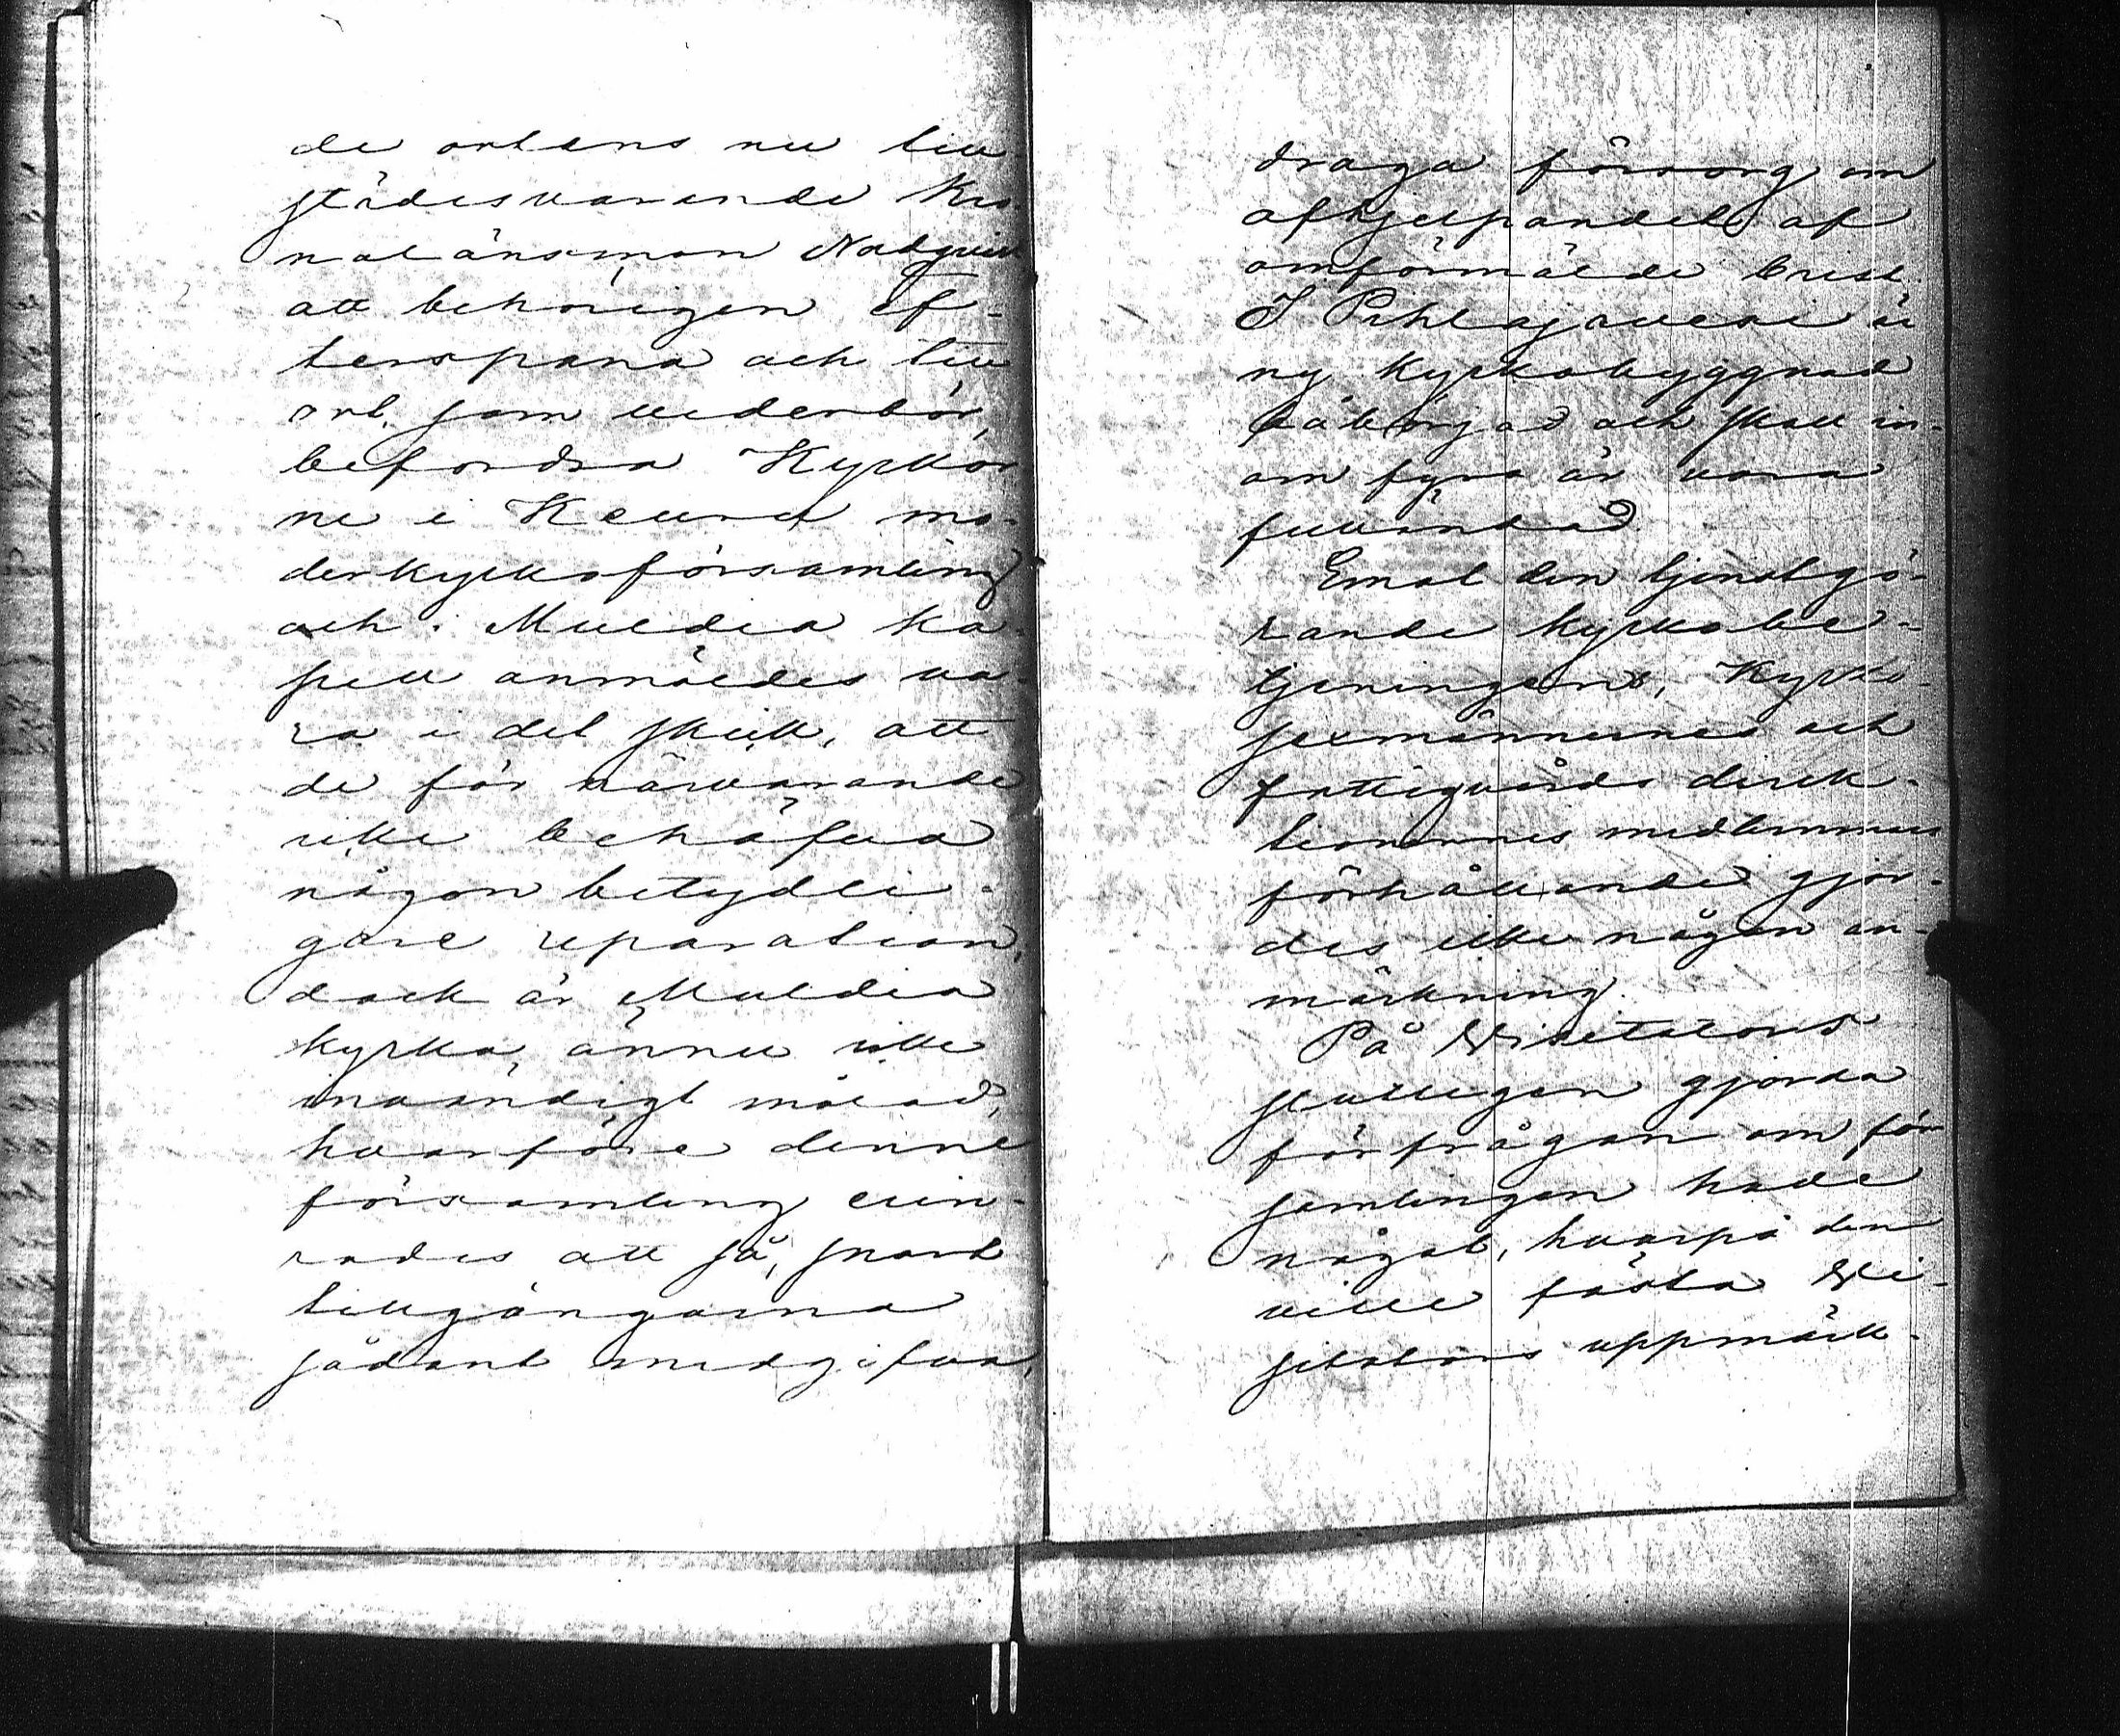 de ortens nu till
städesvarande Kro
nolänsman Nordqvist
att behörigen ef-
terspana och till
ort, som vederbör,
befordra Kyrkor
ne i Keuru mo-
derkyrkoförsamling
och i Muldia ka-
pell anmäldes va-
ra i det skick, att
de för närvarande
icke behöfva
någon betydli-
gare reparation,
dock är Muldia
kyrka ännu icke
invändigt målad,
hvarföre denne
församling erin-
rades att så, snart
tillgångarna
sådant medgifva,
draga försorg om
afhjelpandet af
omförmälde brist.
I Pihlajavesi är
ny kyrkobyggnad
påbörjad och skall in-
om fyra år vara
fulländad
Emot den tjenstgö-
rande kyrkobe-
tjeningens, Kyrko-
sexmännernes och
fattigvårds direk-
tionernes medlemmars
förhållande gjor-
des icke någon an-
märkning.
På Visitators
skulligen gjorda
förfrågan om för
samlingen hade
något, hvarpå den
ville fästa Vi-
sitators uppmärk-